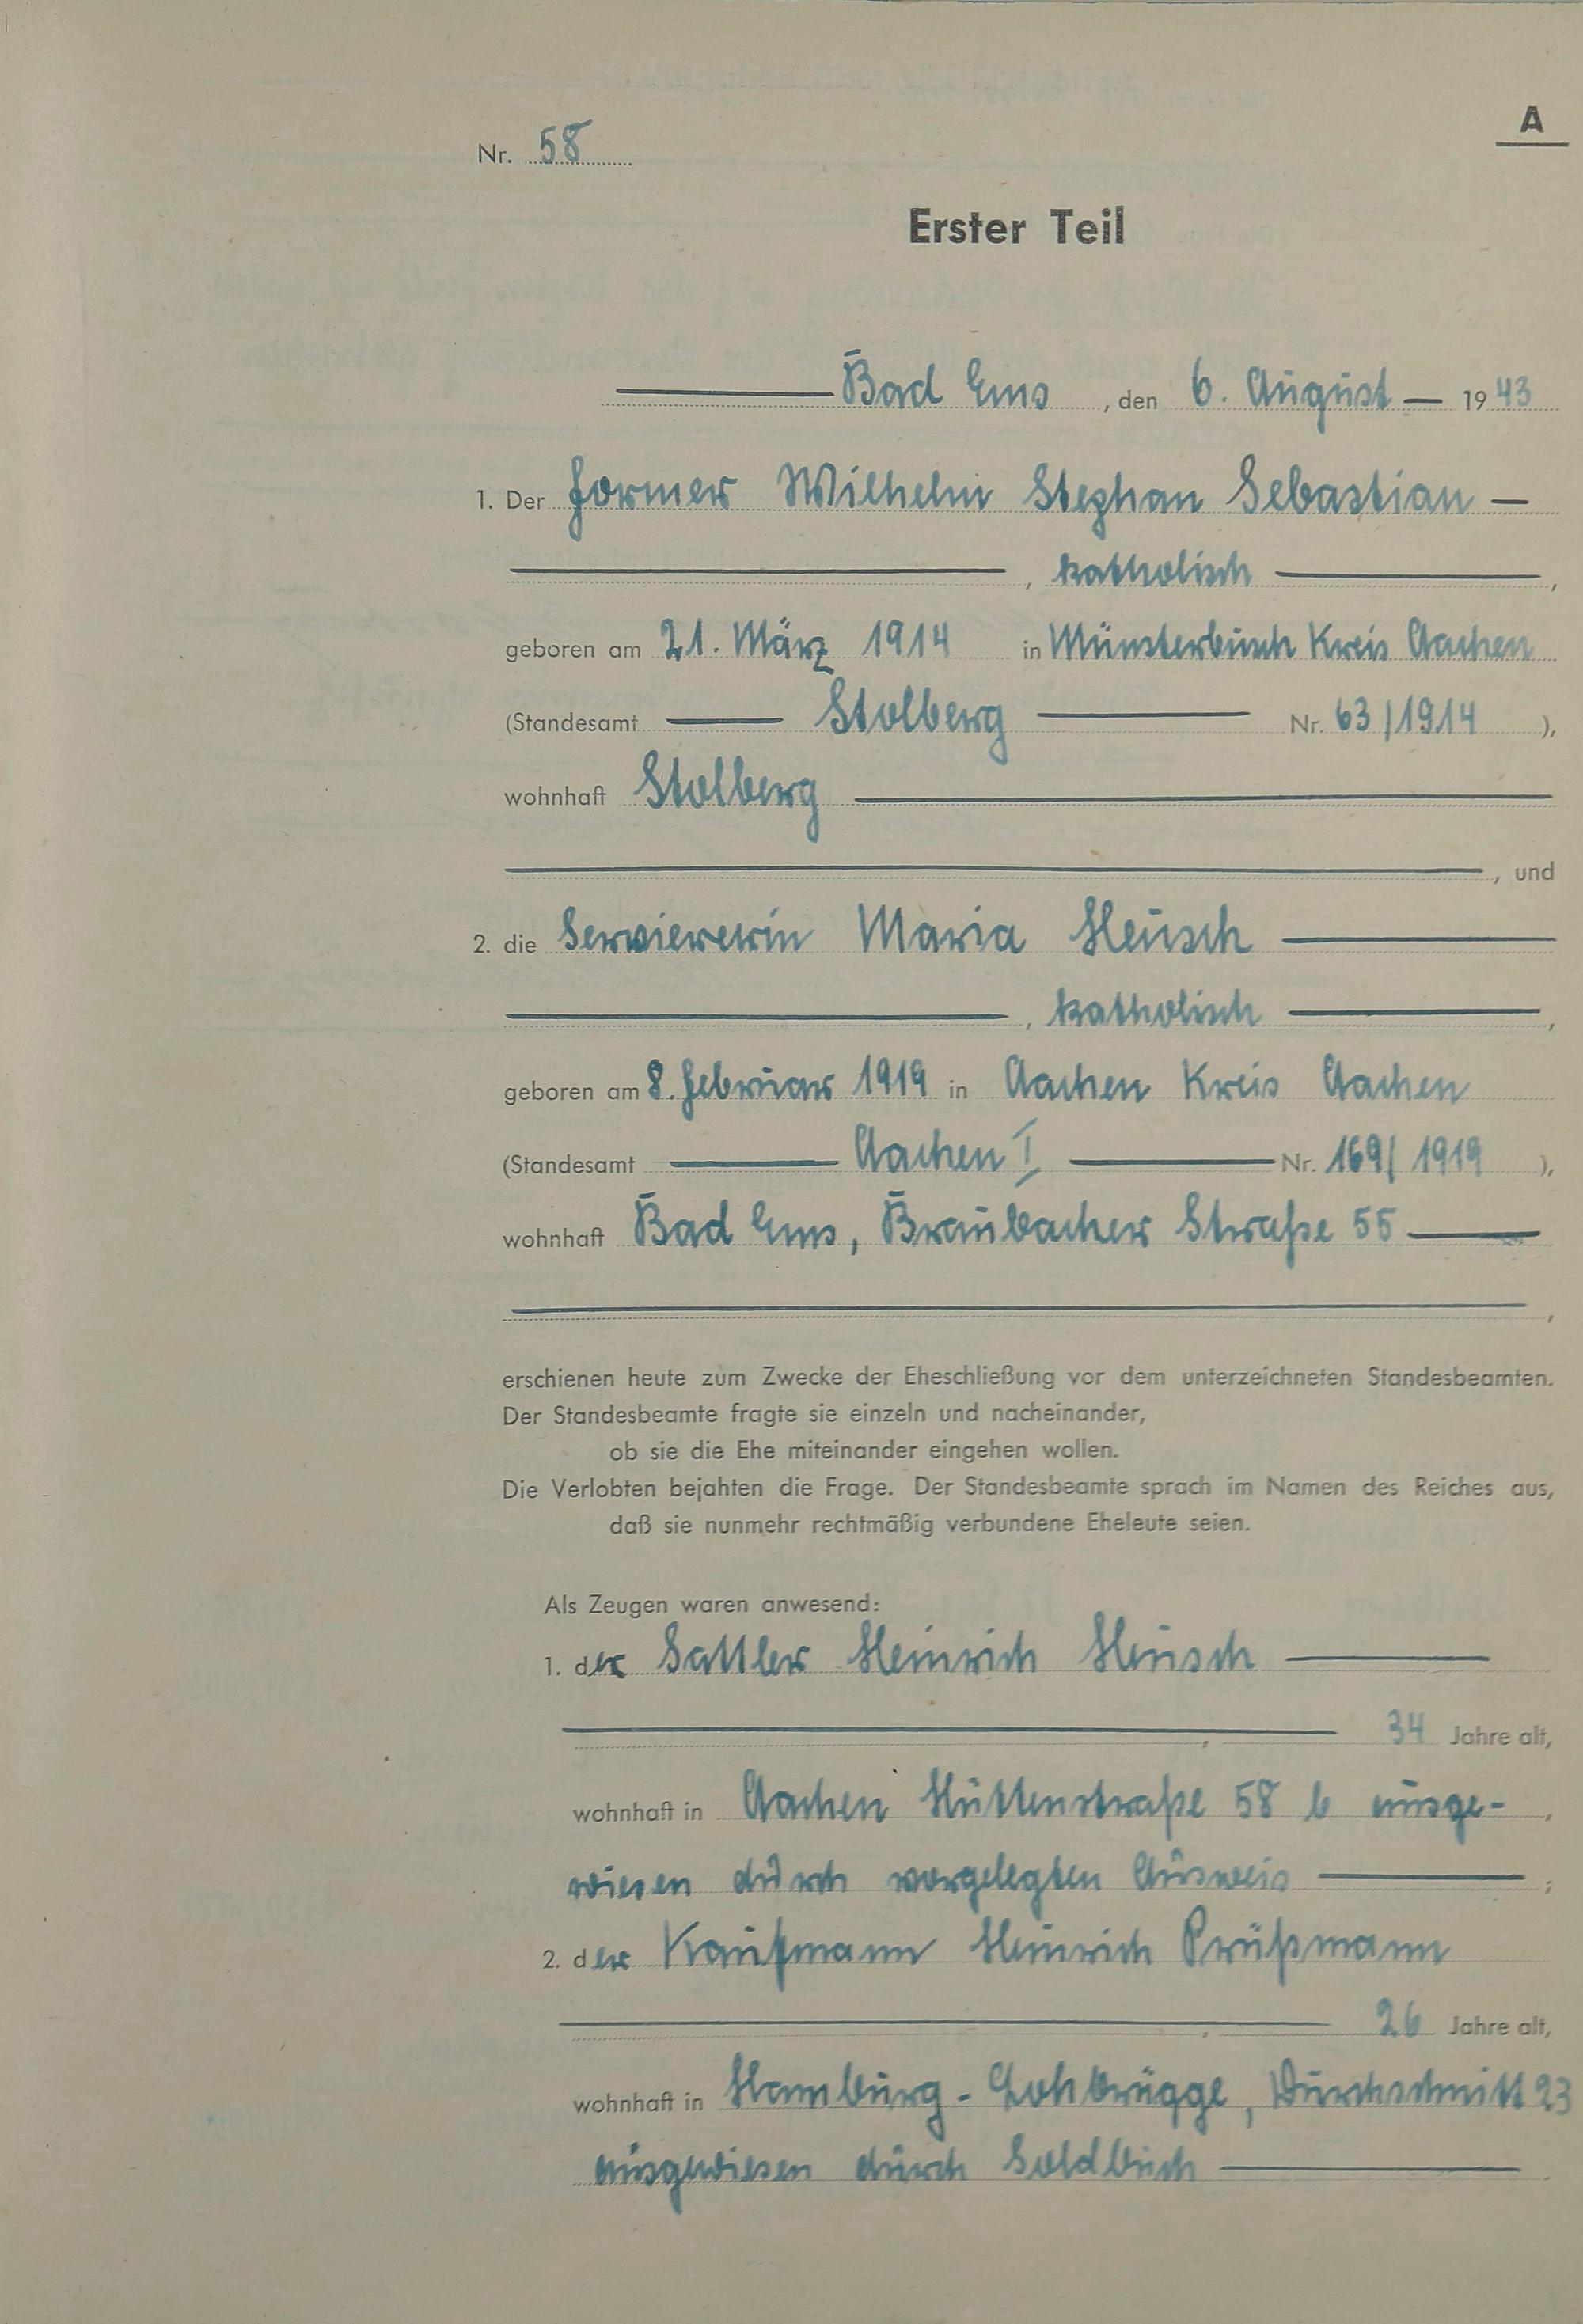 A
Nr. 58
Erster Teil
Bad Ems, den 6. August 1943
1. Der Former Wilhelm Stephan Sebastian
, katholisch ,
geboren am 21. März 1914 in Münsterbusch Kreis Aachen
(Standesamt Stolberg Nr. 63/1914 ),
wohnhaft Stolberg
, und
2. die Serviererin Maria Heusch
, katholisch ,
geboren am 8. Februar 1919 in Aachen Kreis Aachen
(Standesamt Aachen I Nr. 169/1919 ),
wohnhaft Bad Ems, Braubacher Straße 55
,
erschienen heute zum Zwecke der Eheschließung vor dem unterzeichneten Standesbeamten.
Der Standesbeamte fragte sie einzeln und nacheinander,
ob sie die Ehe miteinander eingehen wollen.
Die Verlobten bejahten die Frage. Der Standesbeamte sprach im Namen des Reiches aus,
daß sie nunmehr rechtmäßig verbundene Eheleute seien.
Als Zeugen waren anwesend:
1. der Sattler Heinrich Heusch
, 34 Jahre alt,
wohnhaft in Aachen Hüttenstraße 58 b ausge- ,
wiesen durch vorgelegten Ausweis ;
2. der Kaufmann Heinrich Prüßmann
, 26 Jahre alt,
wohnhaft in Hamburg - Lohbrügge, Durchschnitt 23
ausgewiesen durch Soldbuch .